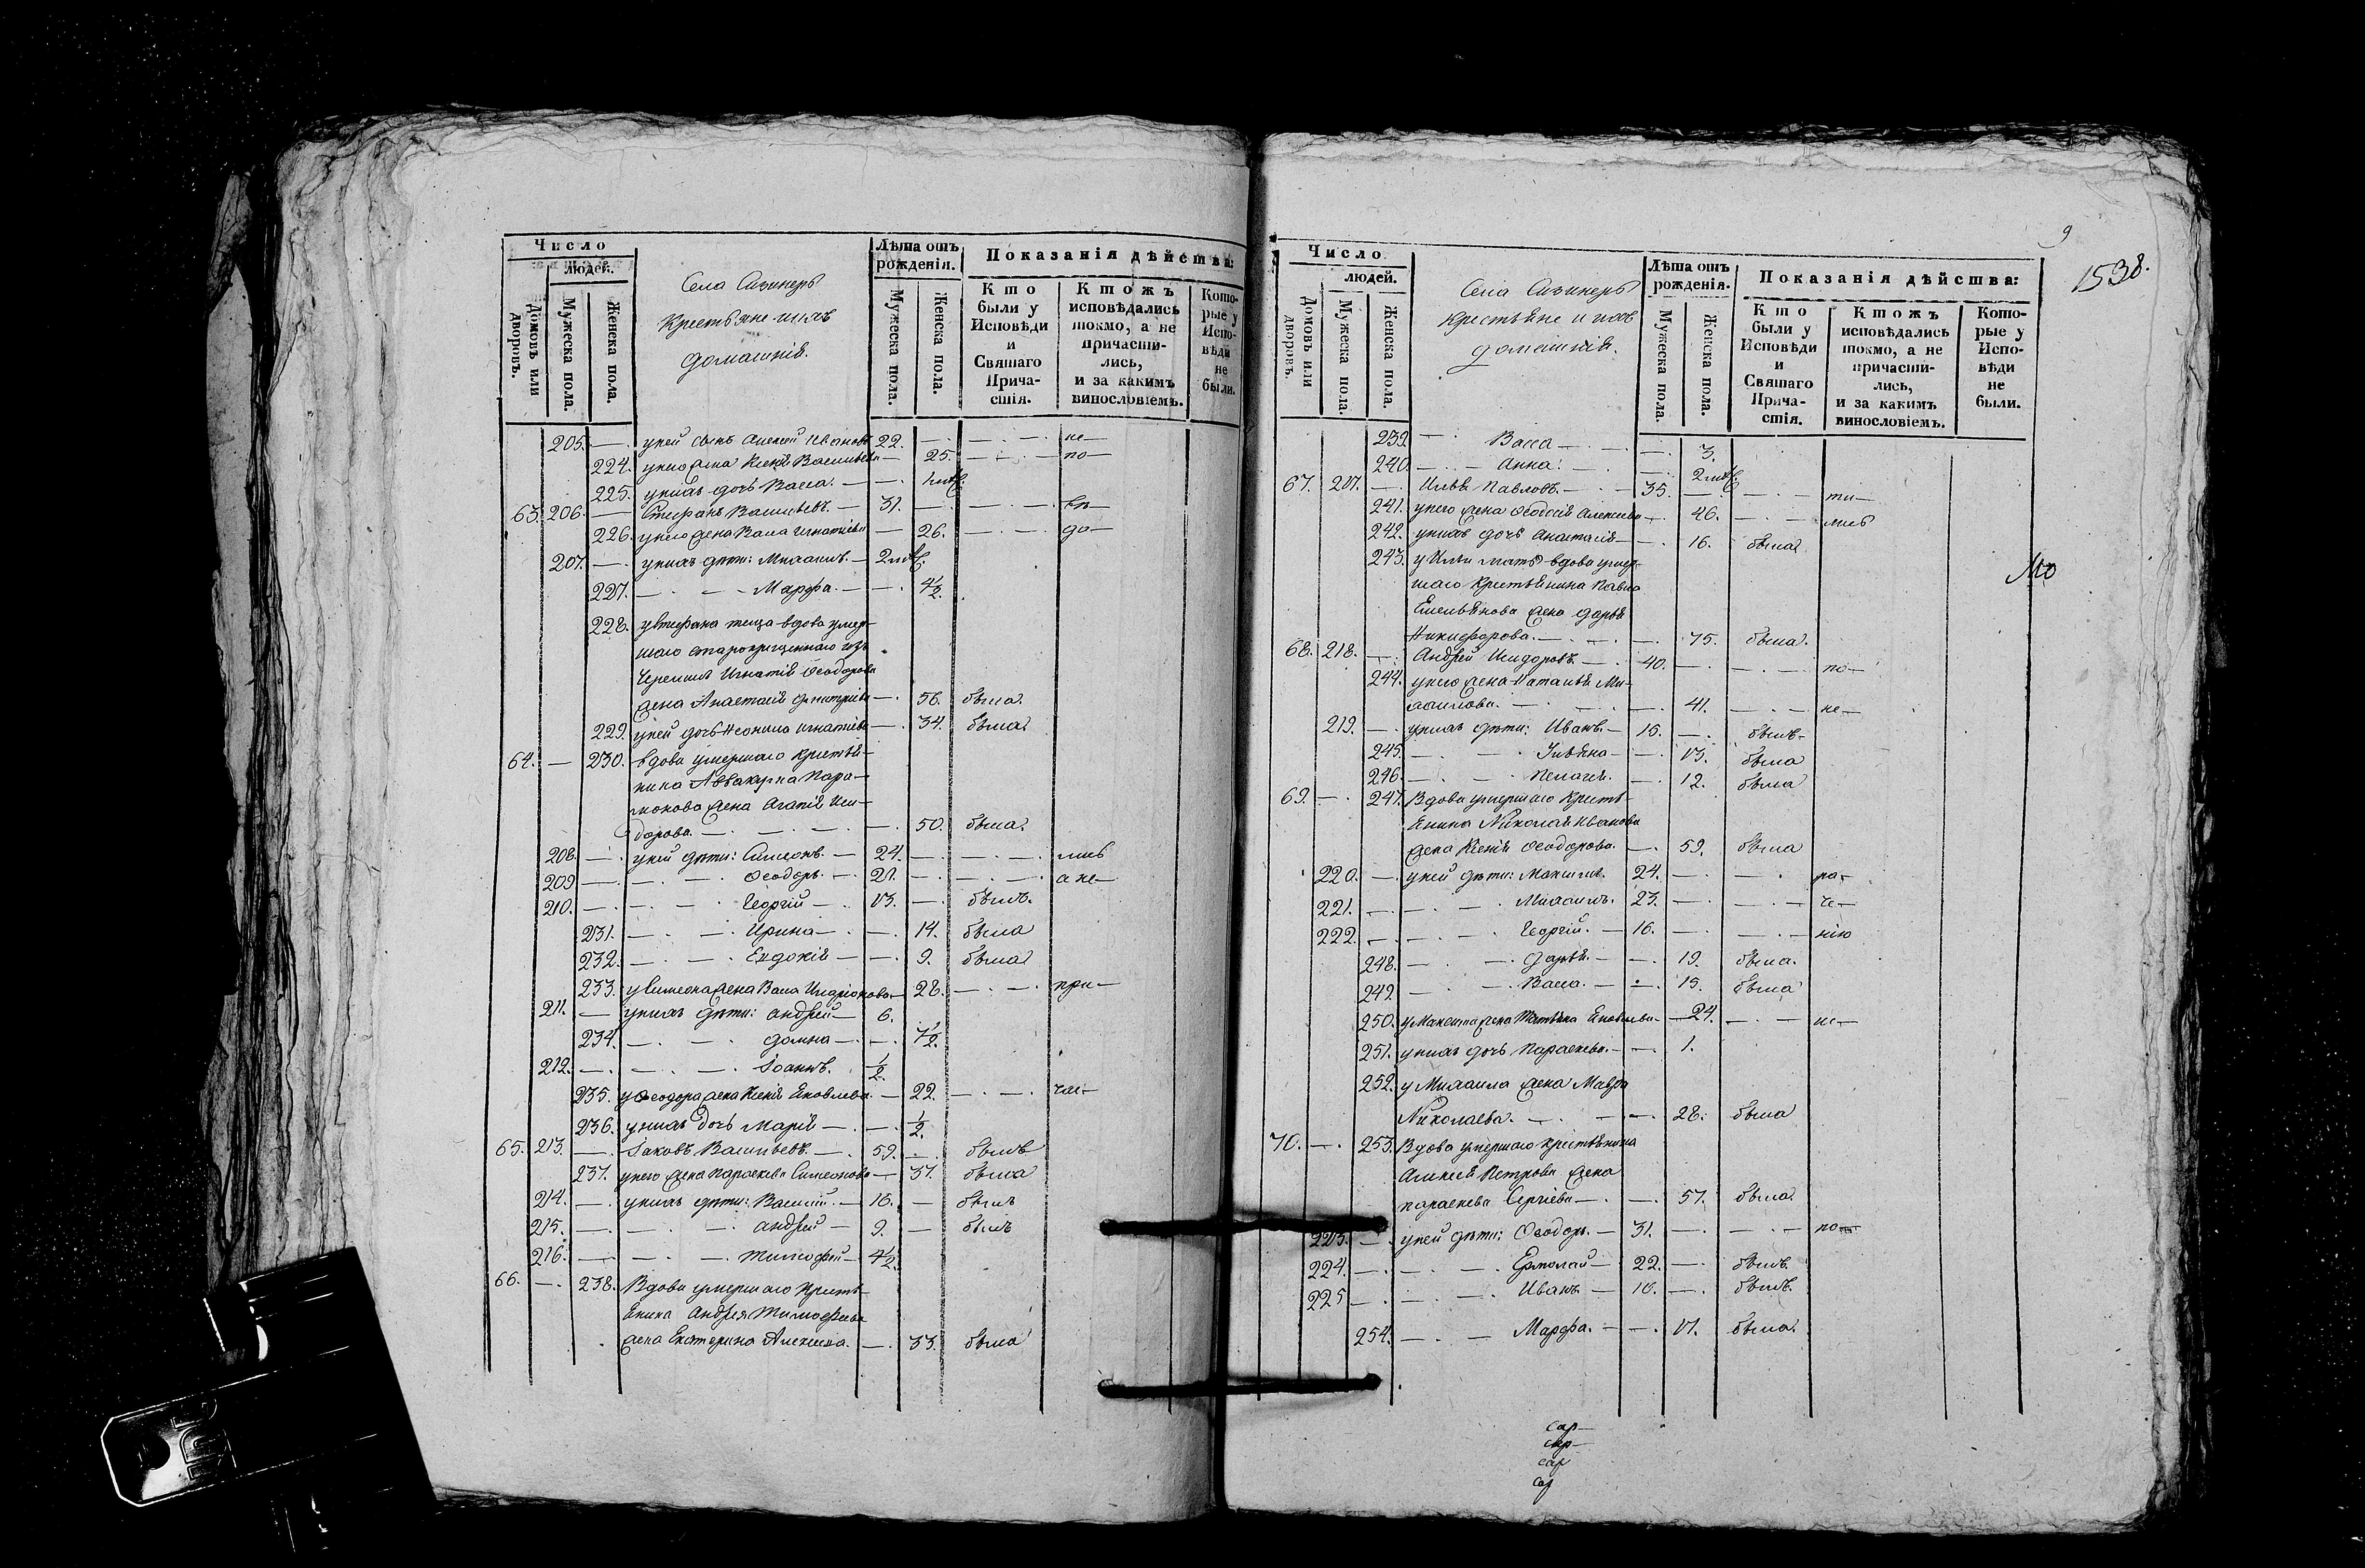 Число
людей.
Домовъ или дворовъ.
Мужеска пола.
Женска пола.
Села
Крестьяне и ихъ
домашнія.
Лѣта отъ рожденія.
Мужеска пола.
Женска пола.
Показанія дѣйства:
Кто были у Исповѣди и Святаго Причастія.
Ктожъ исповѣдались токмо, а не причастились, и за какимъ винословіемъ.
Которые у Исповѣди не были.
205. — у ней сынъ Алексѣй Ивановъ 22. — — не—
224. у него жена Ксенія Васильева — 25. — по—
225. у нихъ дочь Васса. —
63. 206. — Стефанъ Васильевъ. — 31. — —
226. у него жена Васса Игнатіева — 26. — до—
207. — у нихъ дѣти: Михаилъ. —
227. — Марфа. — 4½.
228. у Стефана теща вдова умер-
шаго старокрещеннаго изъ
Черемисъ Игнатія Ѳеодорова
жена Анастасія Дмитріева — 56. была.
229. у ней дочь Неонила Игнатіева — 34. была
64. — 230. вдова умершаго крестья-
нина Аввакума Пара-
монова жена Агапія Иси-
дорова. — 50. была
208. — у ней дѣти: Симеонъ. — 24. — — лись
209 — Ѳеодоръ. — 21. — — а не—
210. — Георгій — 13. — былъ.
231. — Ирина — 14. была
232. — Евдокія — 9. была
233. у Симеона жена Васса Иларіонова — 28. — при—
211. — у нихъ дѣти: Андрей — 6.
234. — Домна — 1½.
212. — Іоаннъ. ½.
235. у Ѳеодора жена Ксенія Яковлева. — 22. — час—
236. у нихъ дочь Марія — ½.
65. 213. — Іаковъ Васильевъ. — 59. — былъ
237. у него жена Параскева Симеонова — 37. была
214. — у нихъ дѣти: Василій. — 16. — былъ
215. — Андрей — 9. — былъ
216. — Тимофей — 4½.
66. — 238. Вдова умершаго кресть-
янина Андрея Тимофеева
жена Екатерина Алексѣева. — 33. была
9
1538.
Число
людей.
Домовъ или дворовъ.
Мужеска пола.
Женска пола.
Села
Крестьяне и ихъ
домашнія.
Лѣта отъ рожденія.
Мужеска пола.
Женска пола.
Показанія дѣйства:
Кто были у Исповѣди и Святаго Причастія.
Ктожъ исповѣдались токмо, а не причастились, и за какимъ винословіемъ.
Которые у Исповѣди не были.
239. — Васса — 3.
240. — Анна. —
67. 217. — Илья Павловъ. — 35. — — ти—
241. у него жена Ѳеодосія Алексѣева — 46. — лись
242. у нихъ дочь Анастасія — 16. была
243. у Ильи мать вдова умер-
шаго крестьянина Павла
Емельянова жена Дарья
Никифорова. — 75. была.
68. 218. — Андрей Исидоровъ. — 40. — — по—
244. у него жена Наталья Ми-
хаилова. — 41. — не—
219. — у нихъ дѣти: Иванъ. — 15. — былъ
245. — Ульяна — 13. была
246. — Пелагія. — 12. была
69. — 247. Вдова умершаго кресть-
янина Николая Иванова
жена Ксенія Ѳеодорова. — 59. была
220. — у ней дѣти: Максимъ. 24. — — ра-
221. — Михаилъ. 23. — — че—
222. — Георгій. — 16. — — нію
248. — Дарья. — 19. была.
249 — Васса. — 15. была
250. у Максима жена Татьяна Яковлева — 24. — не—
251. у нихъ дочь Параскева. — 1.
252. у Михаила жена Мавра
Николаева. — 28. была
70. — 253. Вдова умершаго крестьянина
Алексѣя Петрова жена
Параскева Сергіева — 57. была.
223. — у ней дѣти: Ѳеодоръ. — 31. — — по—
224. — Ермолай — 22. — былъ
225 — Иванъ — 16. — былъ.
254. — Марфа. — 17. была.
Мо
сар—
сар—
сар
сар